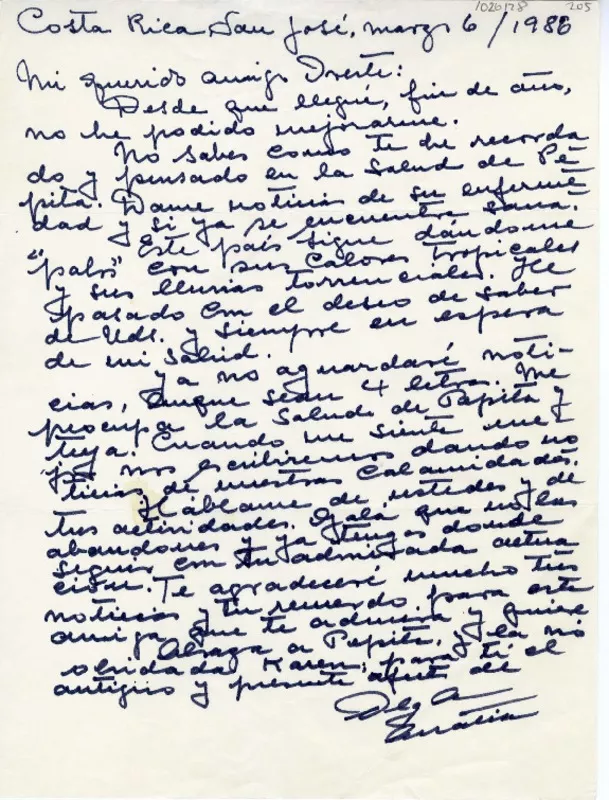 1026128 205
Costa Rica San José, marzo 6/1986
Mi querido amigo Oreste:
Desde que llegué, fin de año,
no he podido mejorarme.
No sabes como te he recorda
do y pensado en la salud de Pe
pita. Dame noticias de su enferme
dad y si ya se encuentra sana.
Este país sigue dándome
"palos" con sus calores tropicales
y sus lluvias torrenciales. He
pasado con el deseo de saber
de Uds. y siempre en espera
de mi salud.
Ya no aguardaré noti-
cias, aunque sean 4 letras. Me
preocupa la salud de Pepita y
tuya. Cuando me siente me-
jor nos escribiremos dando no
ticias de nuestras calamidades.
Háblame de ustedes y de
tus actividades. Ojalá que no las
abandones y ya tengas donde
seguir con tu admirada actua
ción. Te agradeceré mucho tus
noticias y tu recuerdo para esta
amiga que te admira y quiere
Abraza a Pepita, y la no
olvidada Karen; para ti el
antiguo y presente afecto de